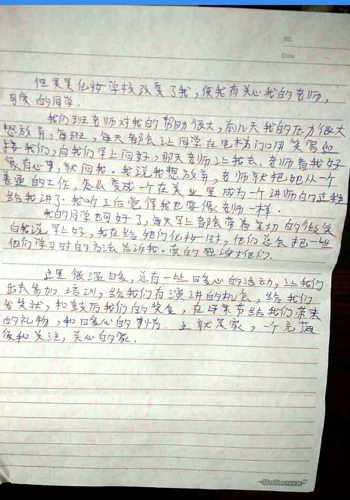 NO.
Date
但果果化妆学校改变了我，使我有关心我的老师，
可爱的同学。
我们班老师对我的帮助很大，前几天我的压力很大
想放弃，每班，每天都会让同学在电梯门口用笑容迎
接我们，向我们早上问好，那天老师让我去，老师看我好
像有心事，就问我。我说我想放弃，老师就把她从一个
普通的工作，怎么变成一个在美业里成为一个讲师的过程
给我讲了。我听了后觉得我也要像老师一样。
我的同学也可好了，每天早上都会带着亲切的微笑
向我说早上好，我在给她们化妆时，他们总会把一些
他们学习时的方法告诉我。真的感谢她们。
这里很温暖，总有一些暖心的活动，让我们
出去参加培训，给我们有演讲的机会，给我们
发奖状，和鼓励我们的奖金，在母亲节给我们带来
的礼物，和暖心的事为。这就是家，一个充满
微和关注，关心的家。